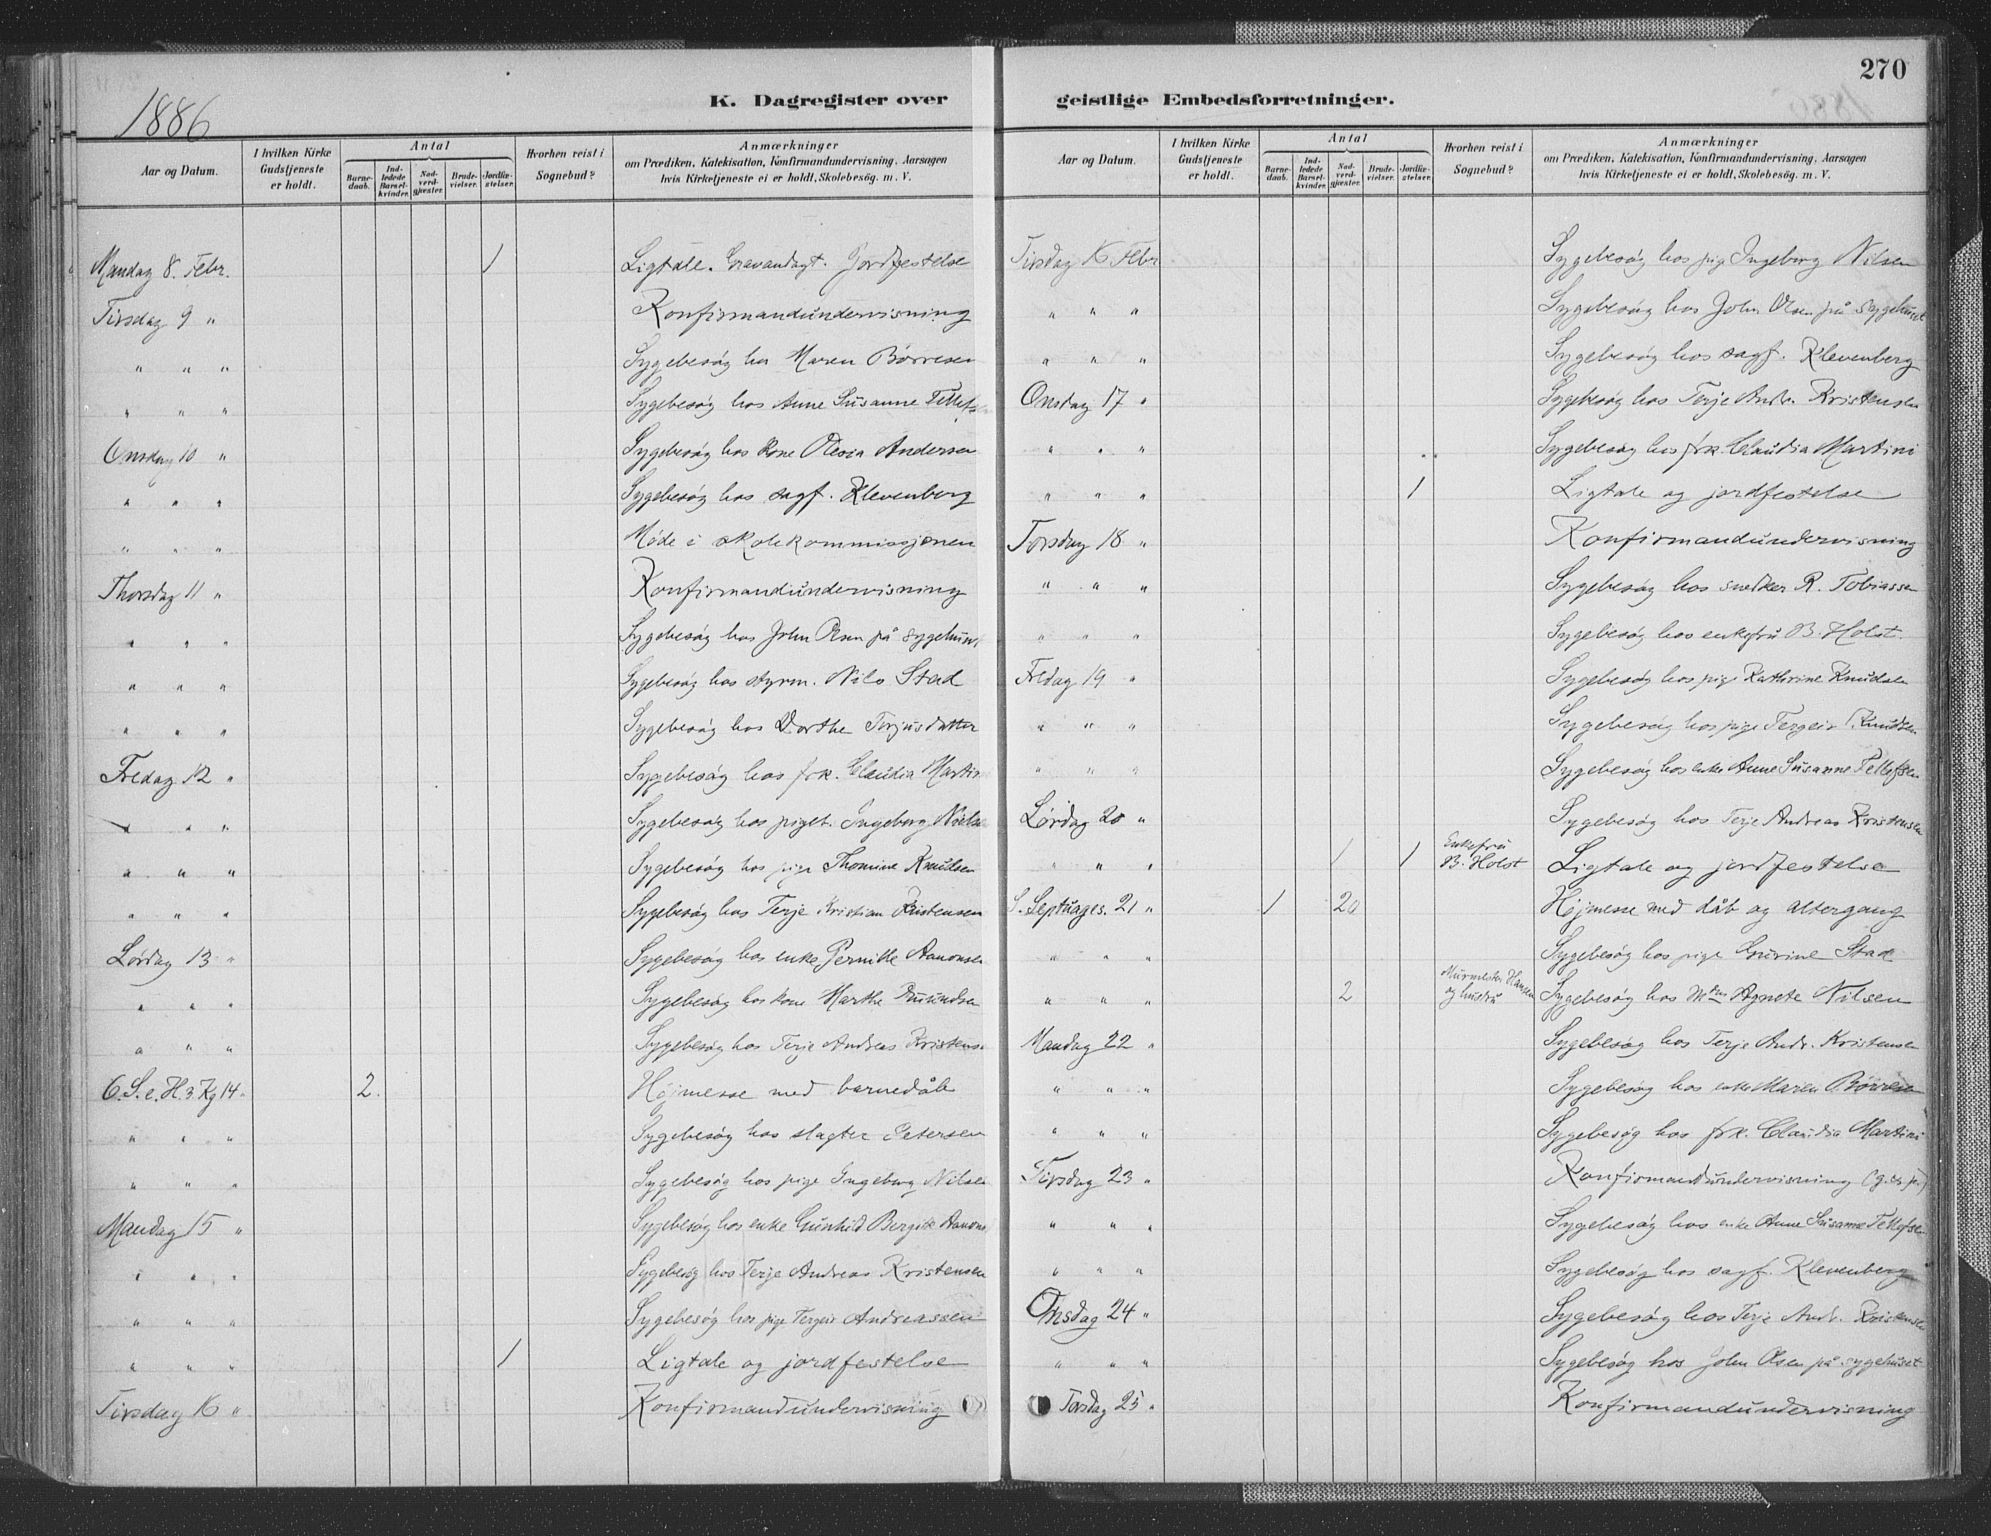 270
1886
K. Dagregister over geistlige Embedsforretninger.
Aar og Datum. | I hvilken Kirke Gudstjeneste er holdt. | Antal | Barnedaab. | Indledede Barselkvinder. | Nadverdgjæster. | Brudevielser. | Jordfæstelser. | Hvorhen reist i Sognebud? | Anmærkninger om Prædiken, Katekisation, Konfirmandundervisning, Aarsagen hvis Kirketjeneste ei er holdt, Skolebesög. m. V.
Mandag 8. Febr. | 1 | Ligtale. Gravandagt. Jordfestelse
Tirsdag 9 " | Konfirmandundervisning
" " " | Sygebesøg hos Maren Börresen
" " " | Sygebesøg hos Anne Susanne Tellefs
Onsdag 10 " | Sygebesøg hos kone Olevia Andersen
" " " | Sygebesøg hos sagf. Klevenberg
" " " | Møde i skolekommissjonen
Thorsdag 11 " | Konfirmandundervisning
" " " | Sygebesøg hos John Olsen på sygehuset
" " " | Sygebesøg hos styrm. Nils Stad
" " " | Sygebesøg hos Dorthe Torjusdatter
Fredag 12 " | Sygebesøg hos frk. Claudia Martin
" " " | Sygebesøg hos piget. Ingeborg Nilse
" " " | Sygebesøg hos pige Thomine Knudsen
" " " | Sygebesøg hos Terje Kristian Kristensen
Lørdag 13 " | Sygebesøg hos enke Pernille Aanonsen
" " " | Sygebesøg hos kone Marthe
" " " | Sygebesøg hos Terje Andreas Kristens
6. S. e. H. 3. Kg 14 " | 2. | Højmesse med barnedåb
" " " | Sygebesøg hos slagter Petersen
" " " | Sygebesøg hos pige Ingeborg Nilsen
Mandag 15 " | Sygebesøg hos enke Gunhild Bergite Aanons
" " " | Sygebesøg hos Terje Andreas Kristensen
" " " | Sygebesøg hos pige Tergeir Andreassen
" " " | 1 | Ligtale og jordfestelse
Tirsdag 16 " | Konfirmandundervisning
Aar og Datum. | I hvilken Kirke Gudstjeneste er holdt. | Antal | Barnedaab. | Indledede Barselkvinder. | Nadverdgjæster. | Brudevielser. | Jordfæstelser. | Hvorhen reist i Sognebud? | Anmærkninger om Prædiken, Katekisation, Konfirmandundervisning, Aarsagen hvis Kirketjeneste ei er holdt, Skolebesög. m. V.
Tirsdag 16 Febr | Sygebesøg hos pige Ingeborg Nilsen
" " " | Sygebesøg hos John Olsen på sygehuset
" " " | Sygebesøg hos sagf. Klevenberg
Onsdag 17 " | Sygebesøg hos Terje Andr. Kristensen
" " " | Sygebesøg hos frk. Claudia Martini
" " " | 1 | Ligtale og jordfestelse
Torsdag 18 " | Konfirmandundervisning
" " " | Sygebesøg hos snedker R. Tobiassen
" " " | Sygebesøg hos enkefru B. Holst.
Fredag 19 " | Sygebesøg hos pige Kathrine Knudsen
" " " | Sygebesøg hos pige Tergeir Knudsen
" " " | Sygebesøg hos enke Anne Susanne Tellefsen
Lørdag 20 " | Sygebesøg hos Terje Andreas Kristensen
" " " | 1 | 1 | Enkefru B. Holst | Ligtale og jordfestelse
S. Septuages. 21 " | 1 | 20 | Højmesse med dåb og altergang
" " " | Sygebesøg hos pige Gurine Stad
" " " | 2 | Murmester Hansen og hustru | Sygebesøg hos Agnete Nilsen
Mandag 22 " | Sygebesøg hos Terje Andr. Kristensen
" " " | Sygebesøg hos enke Maren Börresen
" " " | Sygebesøg hos frk. Claudia Martini
Tirsdag 23 " | Konfirmandundervisning
" " " | Sygebesøg hos enke Anne Susanne Tellefsen
" " " | Sygebesøg hos sagf. Klevenberg
Onsdag 24 " | Sygebesøg hos Terje Andr. Kristensen
" " " | Sygebesøg hos John Olsen på sygehuset
Torsdag 25 " | Konfirmandundervisning